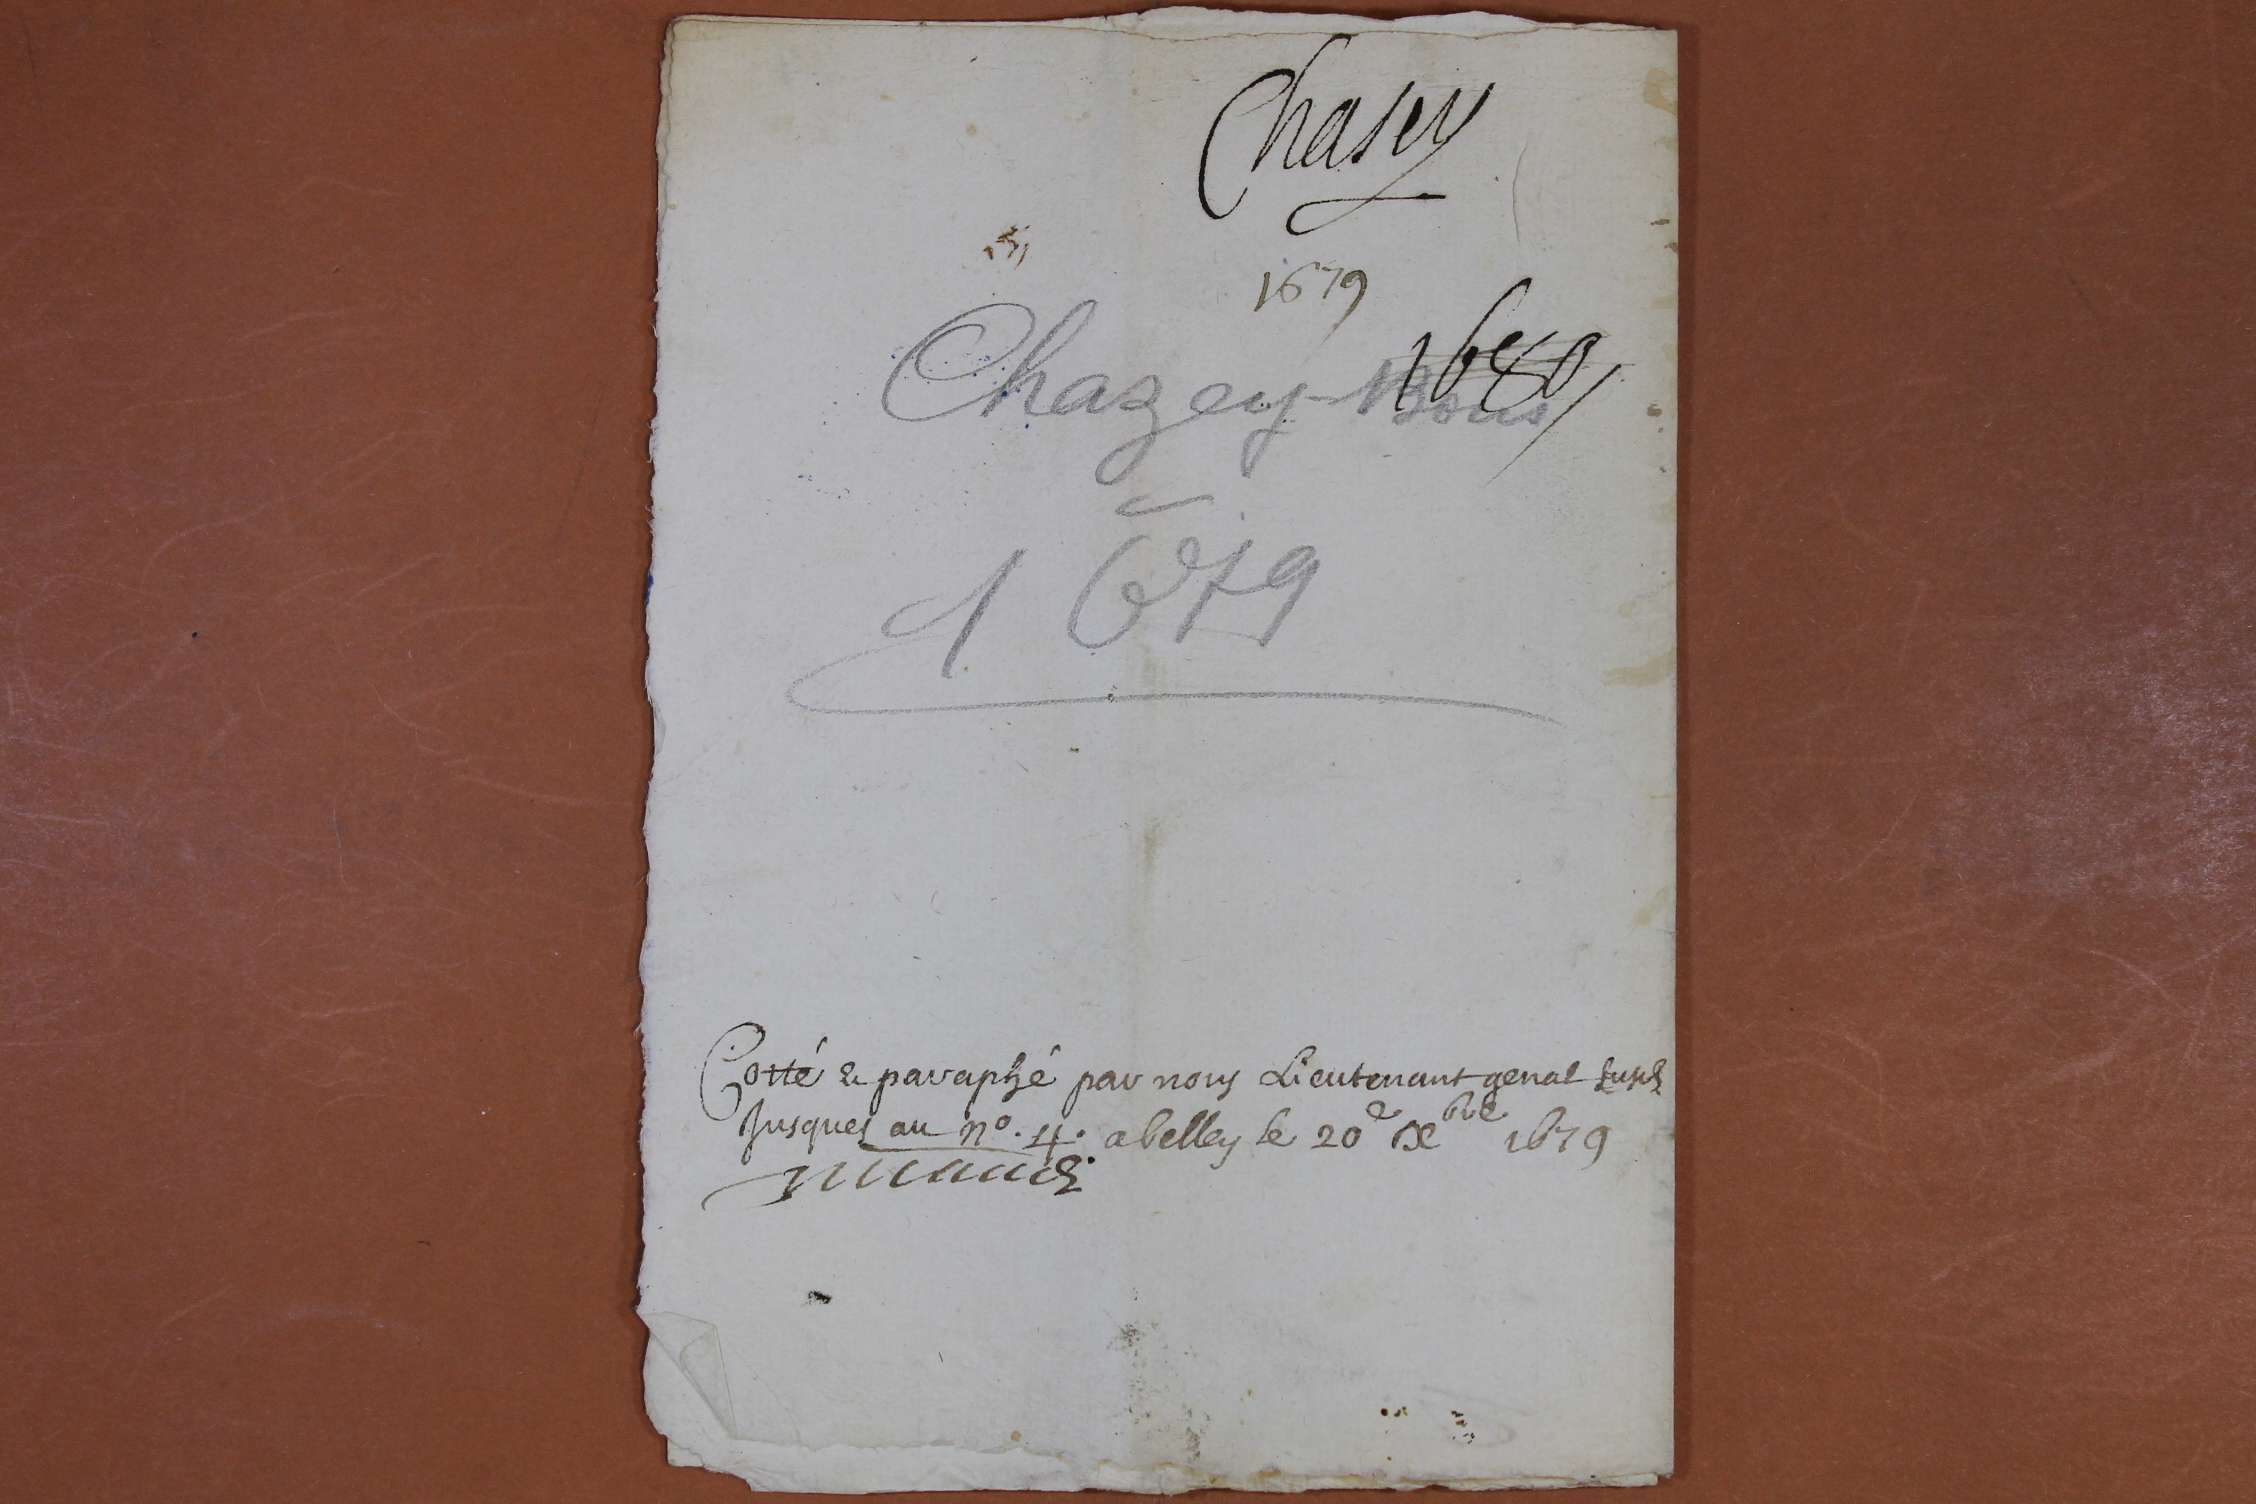 Chasey
1679
1680
Chazey-Bons
1679
Cotté & paraphé par nous Lieutenant genal
Jusques au n°. 4. a belley le 20e Xbre 1679